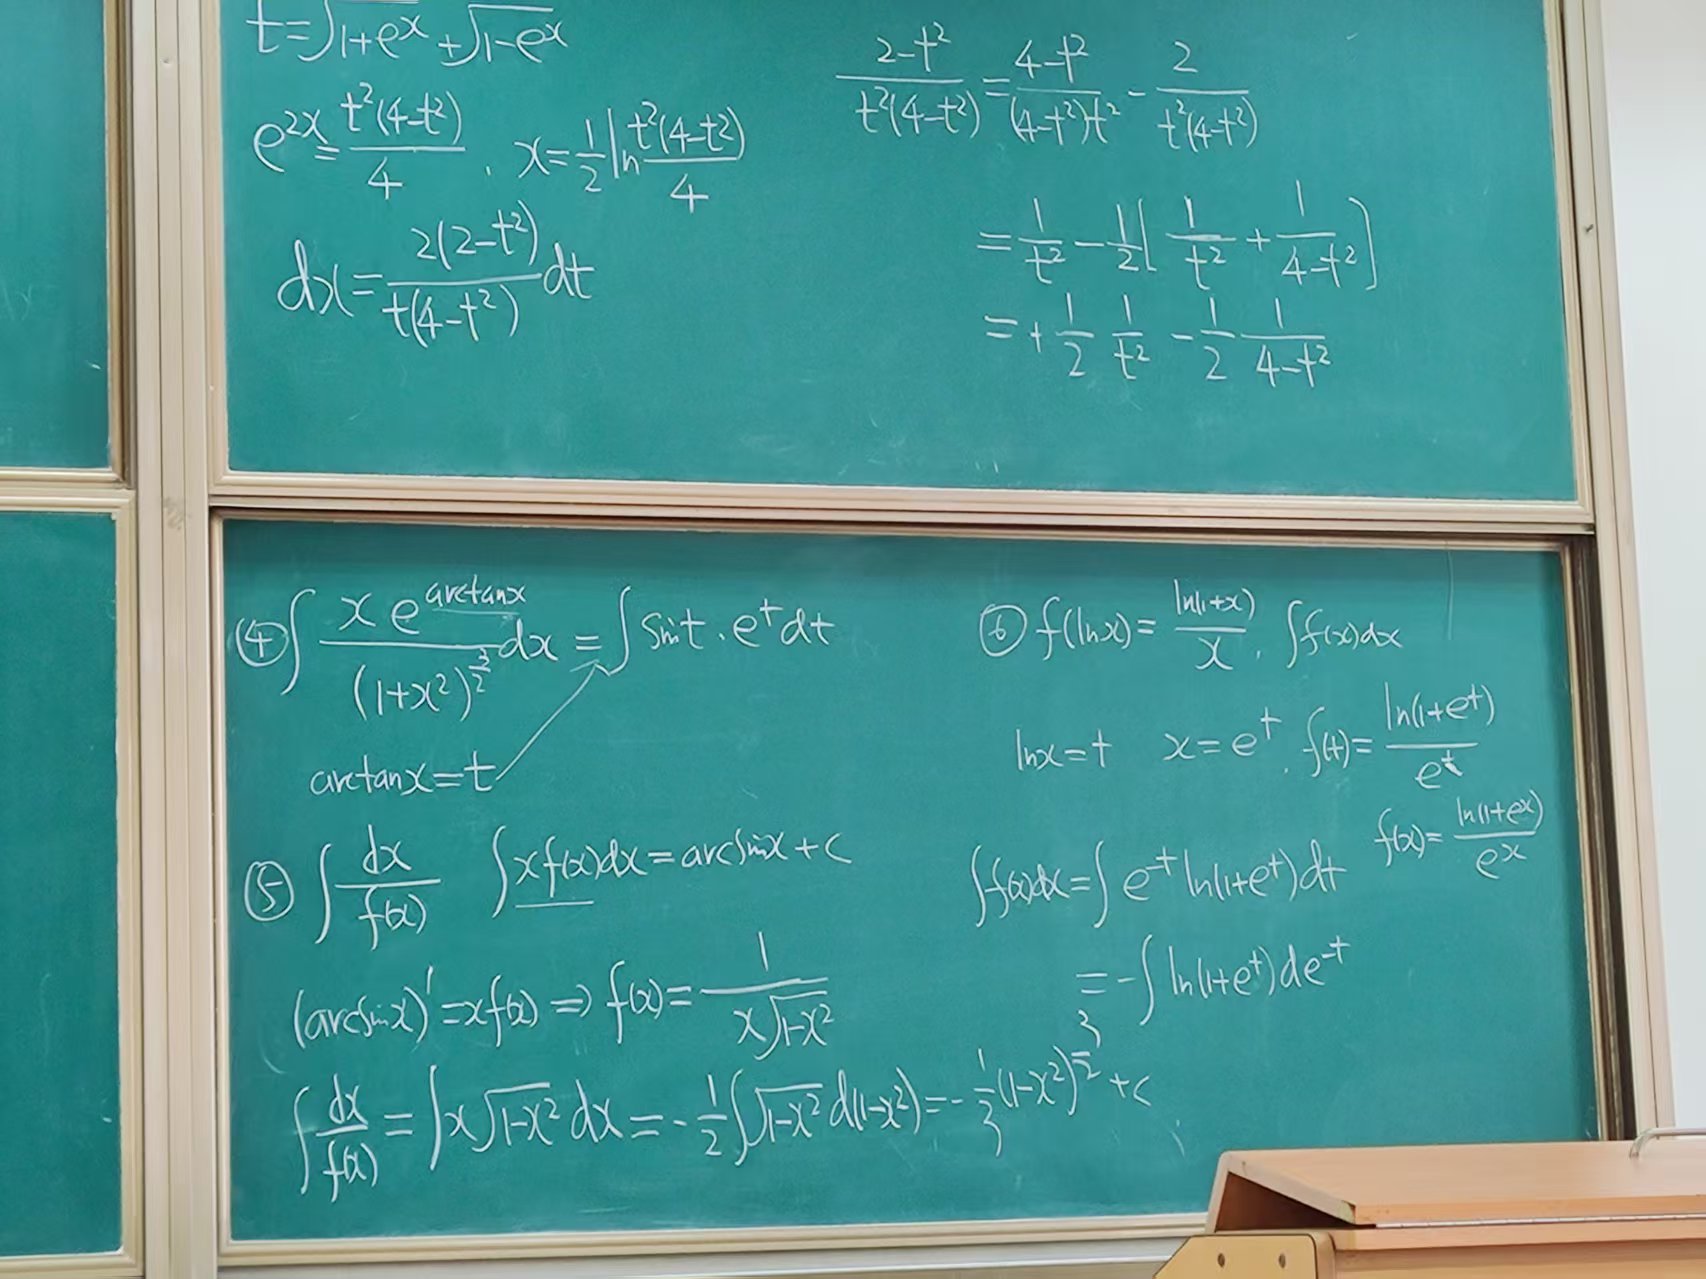 t=√(1+e^x) + √(1-e^x)
e^(2x) = t²(4-t²)/4 . x = 1/2 ln t²(4-t²)/4
dx = 2(2-t²)/(t(4-t²)) dt
(2-t²)/(t²(4-t²)) = (4-t²)/((4-t²)t²) - 2/(t²(4-t²))
= 1/t² - 1/2[1/t² + 1/(4-t²)]
= + 1/2 1/t² - 1/2 1/(4-t²)
④ ∫ x e^(arctanx)/(1+x²)^(3/2) dx = ∫ sint · e^t dt
arctanx = t
⑤ ∫ dx/f(x) ∫ xf(x)dx = arcsinx + c
(arcsinx)' = xf(x) ⇒ f(x) = 1/(x√(1-x²))
∫ dx/f(x) = ∫ x√(1-x²) dx = -1/2 ∫ √(1-x²) d(1-x²) = -1/3 (1-x²)^(3/2) + c
⑥ f(lnx) = ln(1+x)/x . ∫ f(x)dx
lnx = t x = e^t . f(t) = ln(1+e^t)/e^t
f(x) = ln(1+e^x)/e^x
∫ f(x)dx = ∫ e^(-t) ln(1+e^t) dt
= -∫ ln(1+e^t) de^(-t)